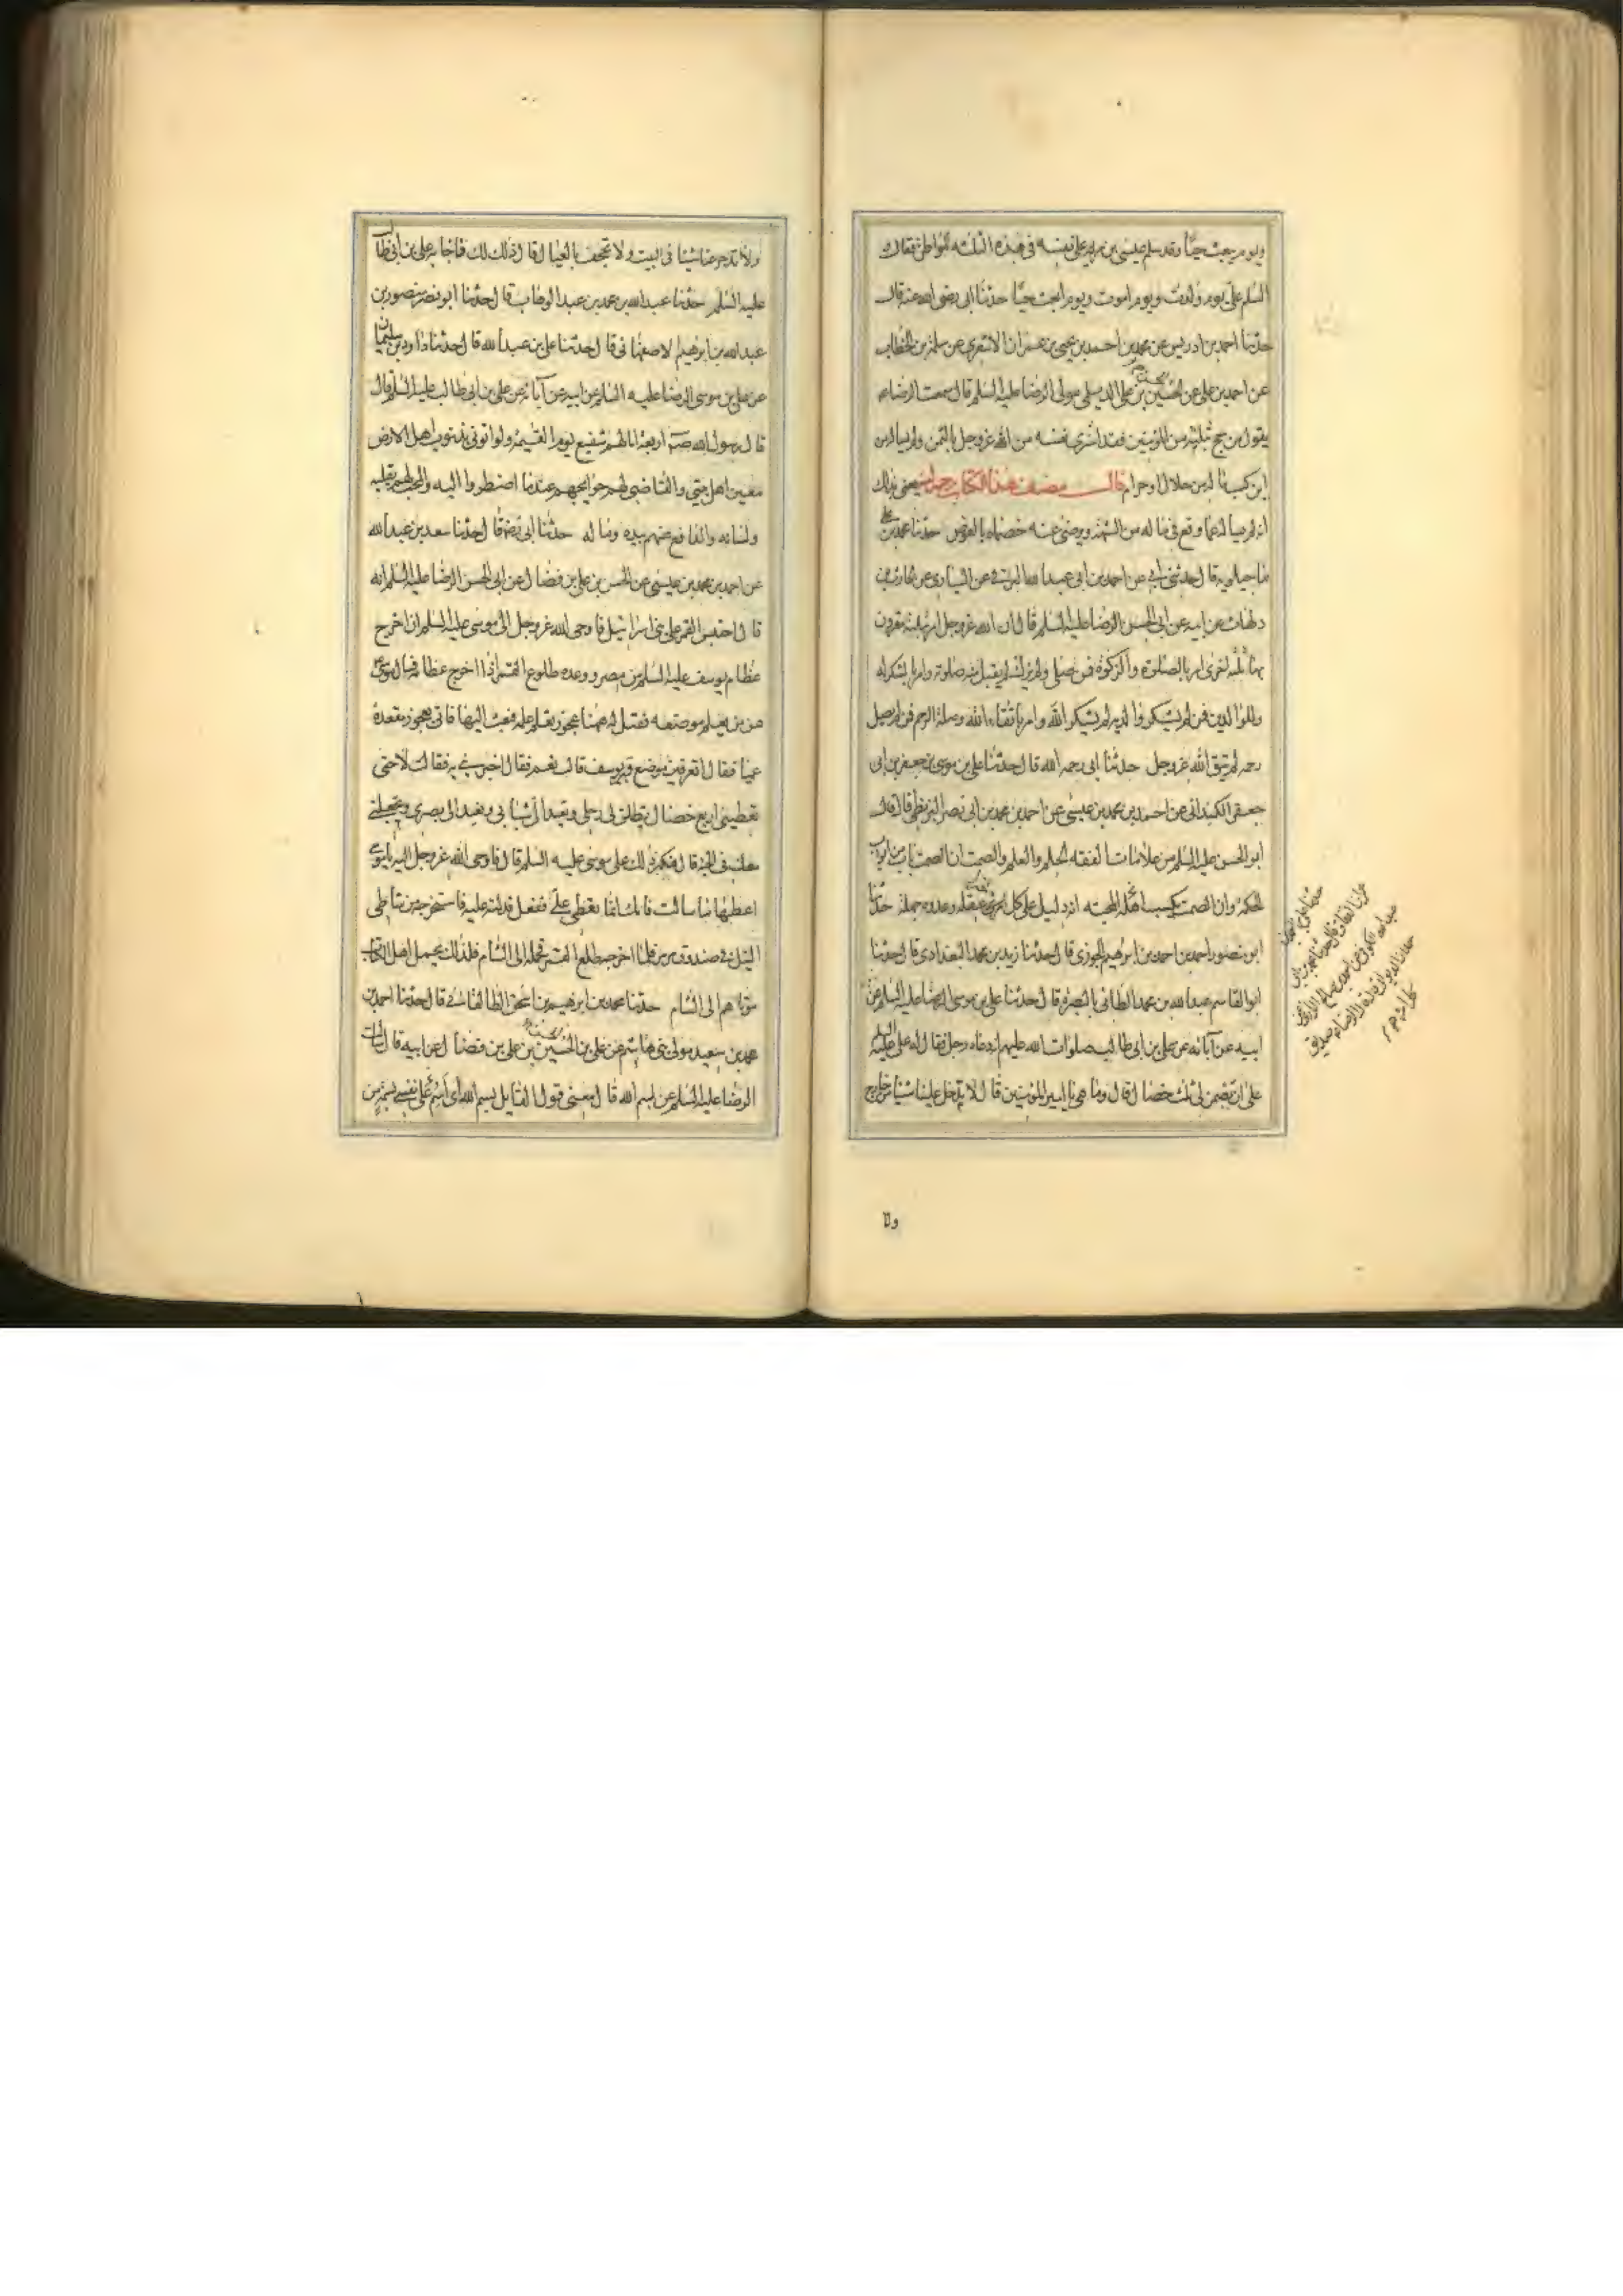 ويوم يبعث حيّا وقد سلم عيسى بن مريم على نفسه في هذه الثلثه المواطن فقال و
السلم علىّ يوم ولدت ويوم اموت ويوم ابعث حيّا حدثنا ابى رضى الله عنه قال
حدثنا احمد بن ادريس عن محمد بن احمد بن يحيى بن عمران الاشعرى عن سلمة بن الخطاب
عن احمد بن على عن الحسين بن على الديلمى مولى الرضا عليه السلم قال سمعت الرضا ع
يقول من حج بثلثة من المؤمنين فقد اشترى نفسه من الله عز وجل بالثمن ولم يساله من
اين كسب ماله من حلال او حرام قال مصنف هذا الكتاب رحمه الله يعنى بذلك
انه لم يساله عما وقع فى ماله من الشبهة ويرضى عنه خصماه بالعوض حدثنا محمد بن على
ماجيلويه قال حدثنى ابى عن احمد بن ابى عبد الله البرقى عن السيارى عن الحارث بن
دلهاث عن ابيه عن ابى الحسن الرضا عليه السلم قال ان الله عز وجل امر بثلثة مقرون
بها ثلثة اخرى امر بالصلوة والزكوة فمن صلى ولم يزك لم يقبل منه صلوته وامر بالشكر له
وللوالدين فمن لم يشكر والديه لم يشكر الله وامر باتقاء الله وصلة الرحم فمن لم يصل
رحمه لم يتق الله عز وجل حدثنا ابى رحمه الله قال حدثنا على بن موسى بن جعفر بن ابى
جعفر الكميدانى عن احمد بن محمد بن عيسى عن احمد بن محمد بن ابى نصر البزنطى قال قال
ابو الحسن عليه السلم من علامات الفقه الحلم والعلم والصمت ان الصمت باب من ابواب
الحكمة وان الصمت يكسب المحبة انه دليل على كل خير حدثنا
ابو منصور احمد بن ابرهيم الخوزى قال حدثنا زيد بن محمد البغدادى قال حدثنا
ابو القاسم عبد الله بن محمد الطائى بالبصرة قال حدثنا على بن موسى الرضا عليه السلم عن
ابيه عن آبائه عن على بن ابى طالب صلوات الله عليهم انه دعاه رجل فقال له على عليه السلم
على ان تضمن لى ثلث خصال قال وما هى يا امير المؤمنين قال لا تدخل علينا شيئا من خارج
ولا
ولا تدخر عنا شيئا فى البيت ولا تجحف بالعيال قال ذلك لك فاجابه على بن ابى طالب
عليه السلم حدثنا عبد الله بن محمد بن عبد الوهاب قال حدثنا ابو نصر منصور بن
عبد الله بن ابرهيم الاصفهانى قال حدثنا على بن عبد الله قال حدثنا داود بن سليمان
عن على بن موسى الرضا عليه السلم عن ابيه عن آبائه عن على بن ابى طالب عليه السلم قال
قال رسول الله ص اربعة انا لهم شفيع يوم القيمة ولو اتونى بذنوب اهل الارض
معين اهل بيتى والقاضى لهم حوايجهم عند ما اضطروا اليه والمحب لهم بقلبه
ولسانه والدافع عنهم بيده وماله حدثنا ابى رض قال حدثنا سعد بن عبد الله
عن احمد بن محمد بن عيسى عن الحسن بن على بن فضال عن ابى الحسن الرضا عليه السلم انه
قال احتبس القمر على بنى اسرائيل فاوحى الله عز وجل الى موسى عليه السلم ان اخرج
عظام يوسف عليه السلم من مصر ووعده طلوع القمر اذا اخرج عظامه فسال موسى
عن من يعلم موضعه فقيل له ههنا عجوز تعلم علمه فبعث اليها فاتى بعجوز مقعدة
عميا فقال اتعرفين موضع قبر يوسف قالت نعم فقال اخبرينى به فقالت لا حتى
تعطينى اربع خصال تطلق لى رجلى وتعيد الىّ شبابى وتعيد الى بصرى وتجعلنى
معك فى الجنة قال فكبر ذلك على موسى عليه السلم قال فاوحى الله عز وجل اليه يا موسى
اعطها ما سالت فانك انما تعطى علىّ ففعل فدلته عليه فاستخرجه من شاطى
النيل فى صندوق مرمر فلما اخرجه طلع القمر فحمله الى الشام فلذلك يحمل اهل الكتاب
موتاهم الى الشام حدثنا محمد بن ابرهيم بن اسحق الطالقانى قال حدثنا احمد بن
محمد بن سعيد مولى بنى هاشم عن على بن الحسين بن على بن فضال عن ابيه قال سالت
الرضا عليه السلم عن بسم الله قال معنى قول القايل بسم الله اى اسم على نفسى بسمة من